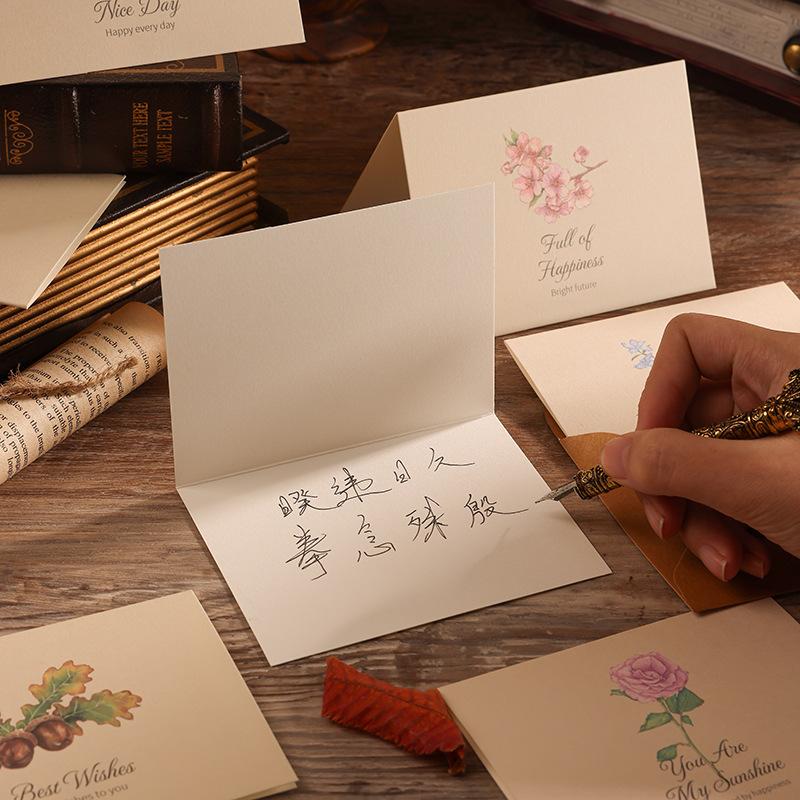 Nice Day
Happy every day
YOUR TEXT HERE
SAMPLE TEXT
Full of
Happiness
Bright future
睽违日久
拳念殊殷
Best Wishes
hes to you
You Are
My Sunshine
d by happiness